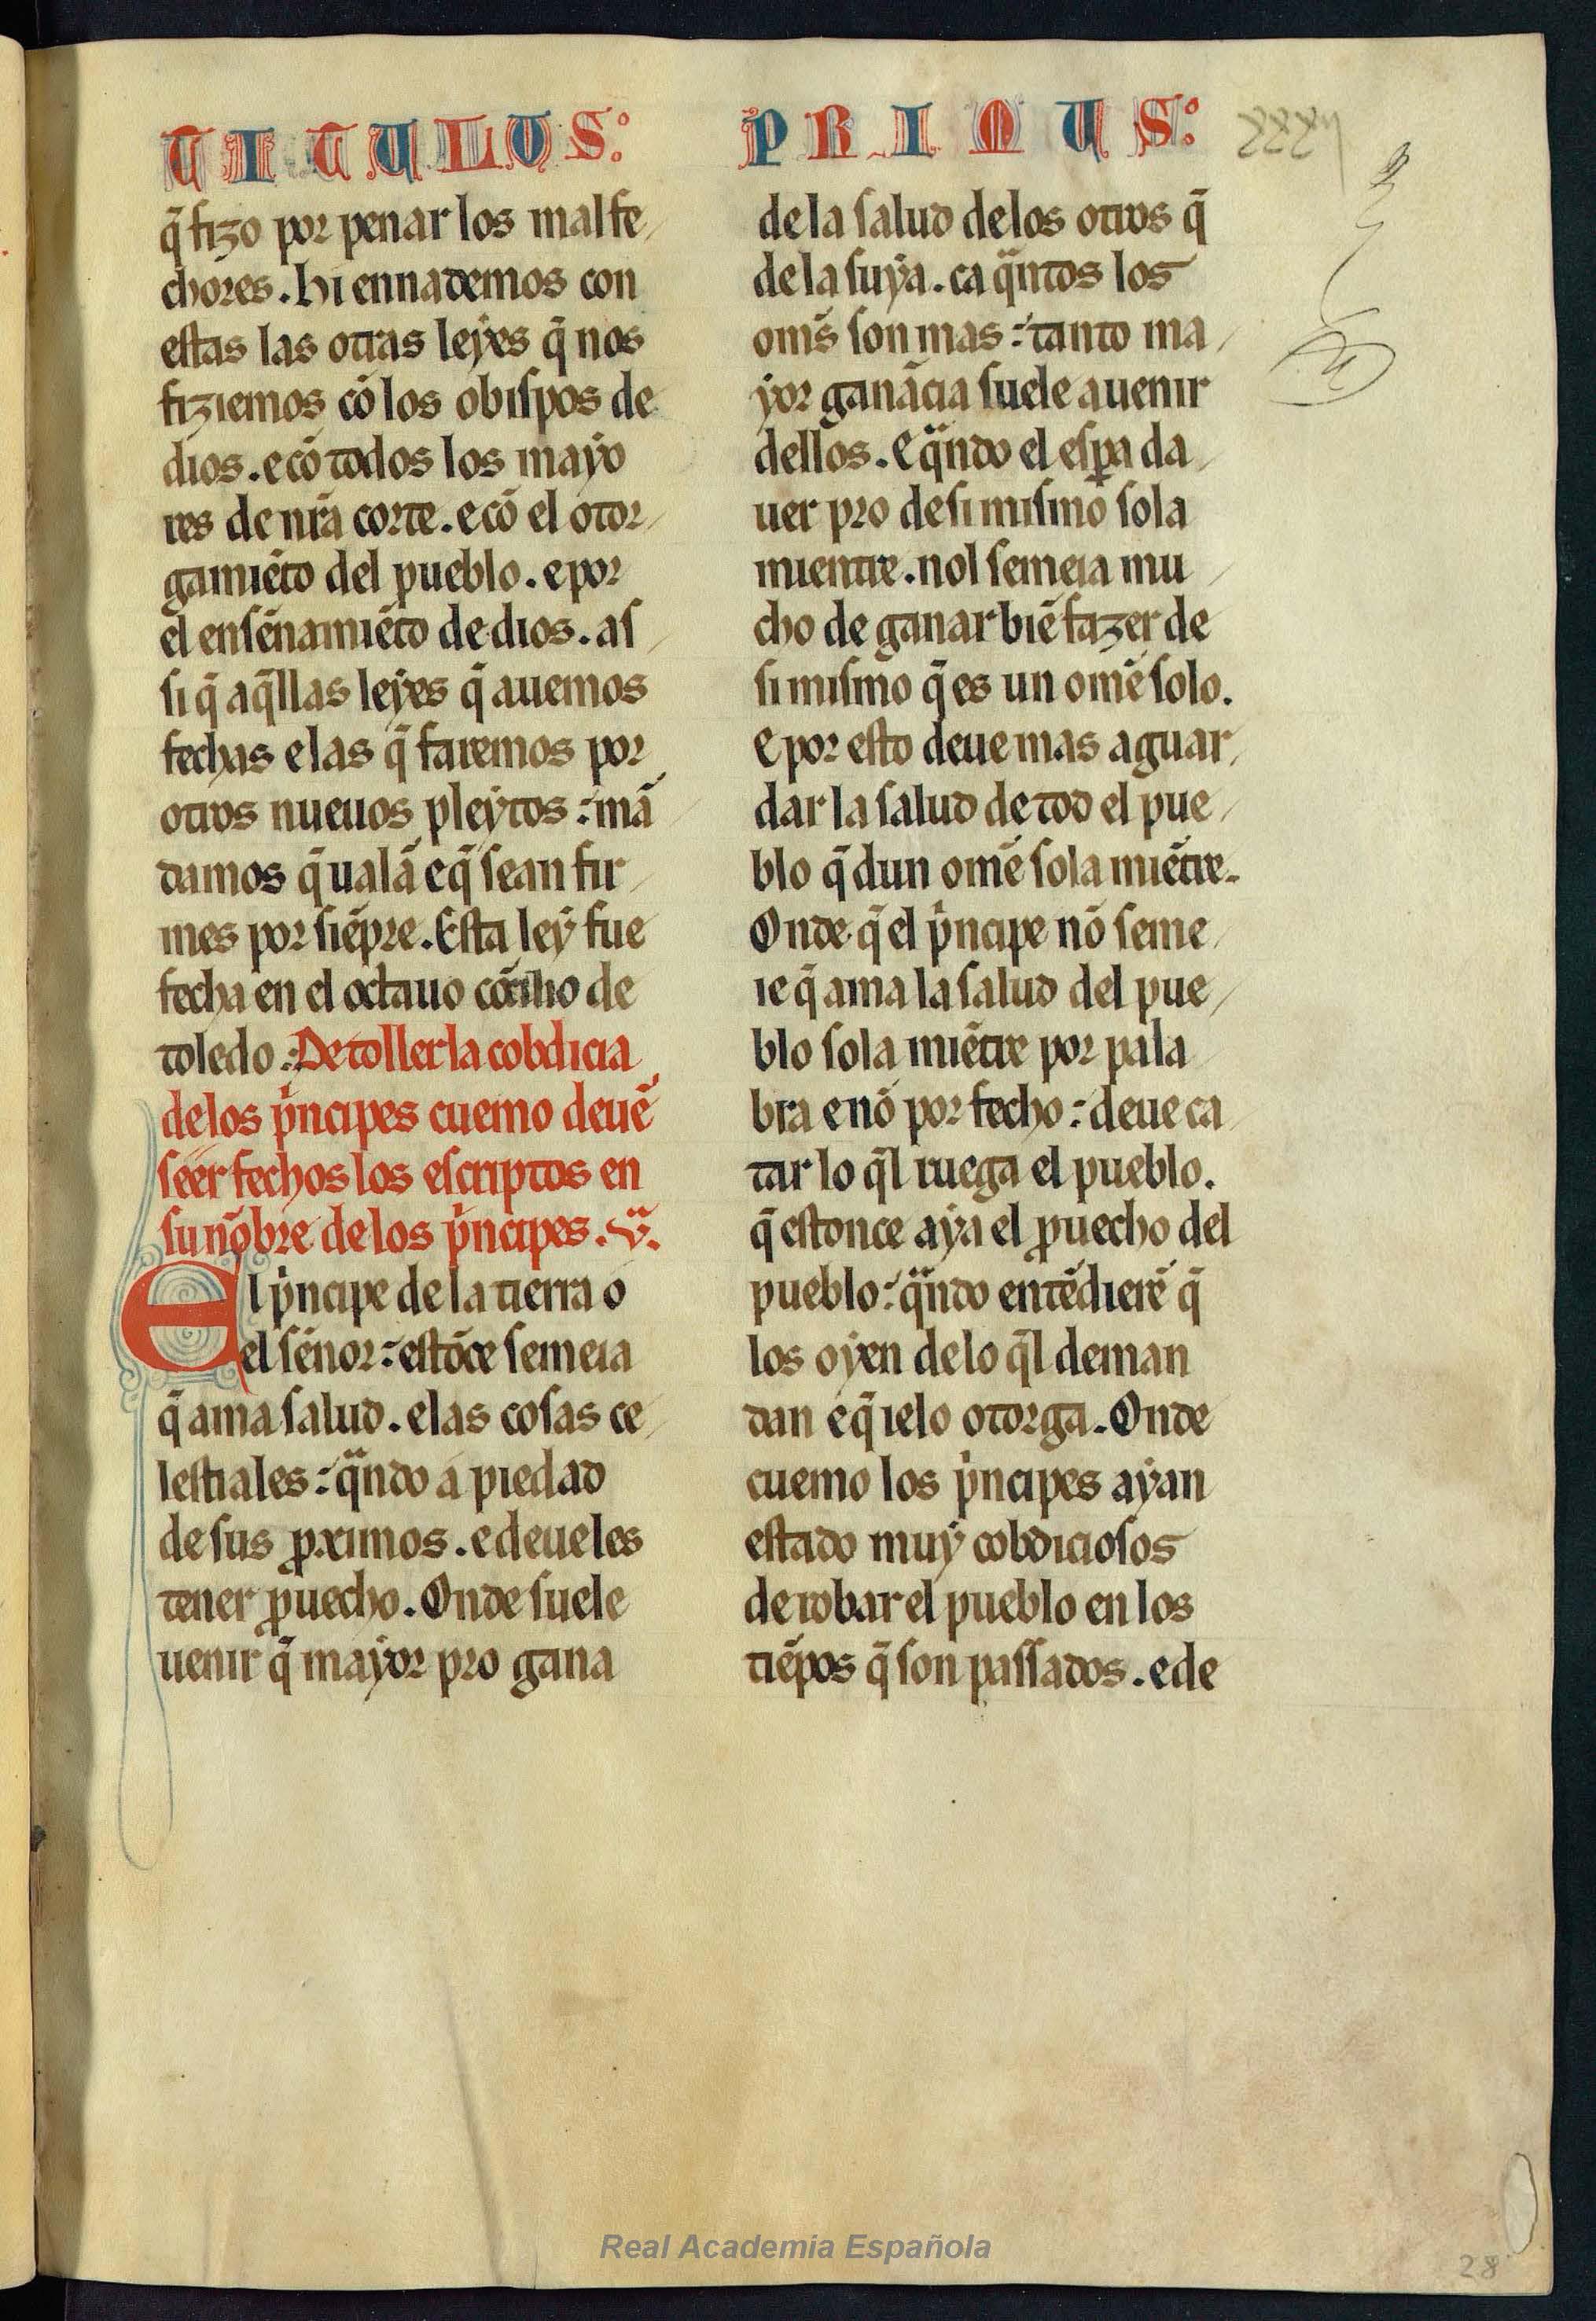 TITULUS:
q̃ fizo por penar los malfe
chores. hi ennademos con
estas las otras leẏes q̃ nos
fiziemos cõ los obispos de
dios. e cõ todos los maẏo
res de nr̃a corte. e cõ el otor
gamiẽto del pueblo. e por
el ensẽnamiẽto de dios. as
si q̃ aq̃llas leẏes q̃ auemos
fechas e las q̃ faremos por
otros nueuos pleẏtos: mã
damos q̃ ualã e q̃ sean fir
mes por siẽpre. Esta leẏ fue
fecha en el octauo cõcilio de
toledo: De toller la cobdicia
de los pͥncipes cuemo deuẽ
seer fechos los escriptos en
su nõbre de los pͥncipes. v̈.
El pͥncipe de la tierra o
el sẽnor: estõce semeia
q̃ ama salud. e las cosas ce
lestiales: qͣndo á piedad
de sus ꝓximos. e deueles
tener ꝓuecho. Onde suele
uenir q̃ maẏor pro gana
PRIMUS:
de la salud de los otros q̃
de la suẏa. ca qͣntos los
om̃s son mas: tanto ma
ẏor ganãcia suele auenir
dellos. E qͣndo el esꝑa da
uer pro de si mismo sola
mientre. nol semeia mu
cho de ganar biẽ fazer de
si mismo q̃ es un omẽ solo.
E por esto deue mas aguar
dar la salud de tod el pue
blo q̃ dun omẽ sola miẽtre.
Onde q̃ el pͥncipe nõ seme
ie q̃ ama la salud del pue
blo sola miẽtre por pala
bra e nõ por fecho: deue ca
tar lo q̃l ruega el pueblo.
q̃ estonce aẏa el ꝓuecho del
pueblo: qͣndo entẽdierẽ q̃
los oẏen de lo q̃l deman
dan e q̃ ielo otorga. Onde
cuemo los pͥncipes aẏan
estado muẏ cobdiciosos
de robar el pueblo en los
tiẽpos q̃ son passados. e de
28
Real Academia Española